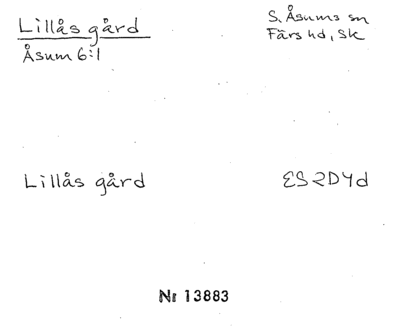 Lillås gård
Åsum 6:1
S. Åsums sn
Färs hd, Sk
Lillås gård
ES2D4d
Nr 13883